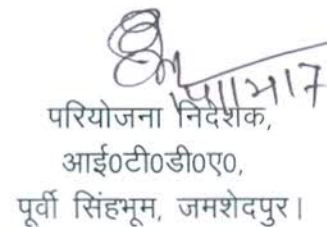 परियोजना निदेशक,
आई०टी०डी०ए०,
पूर्वी सिंहभूम, जमशेदपुर।